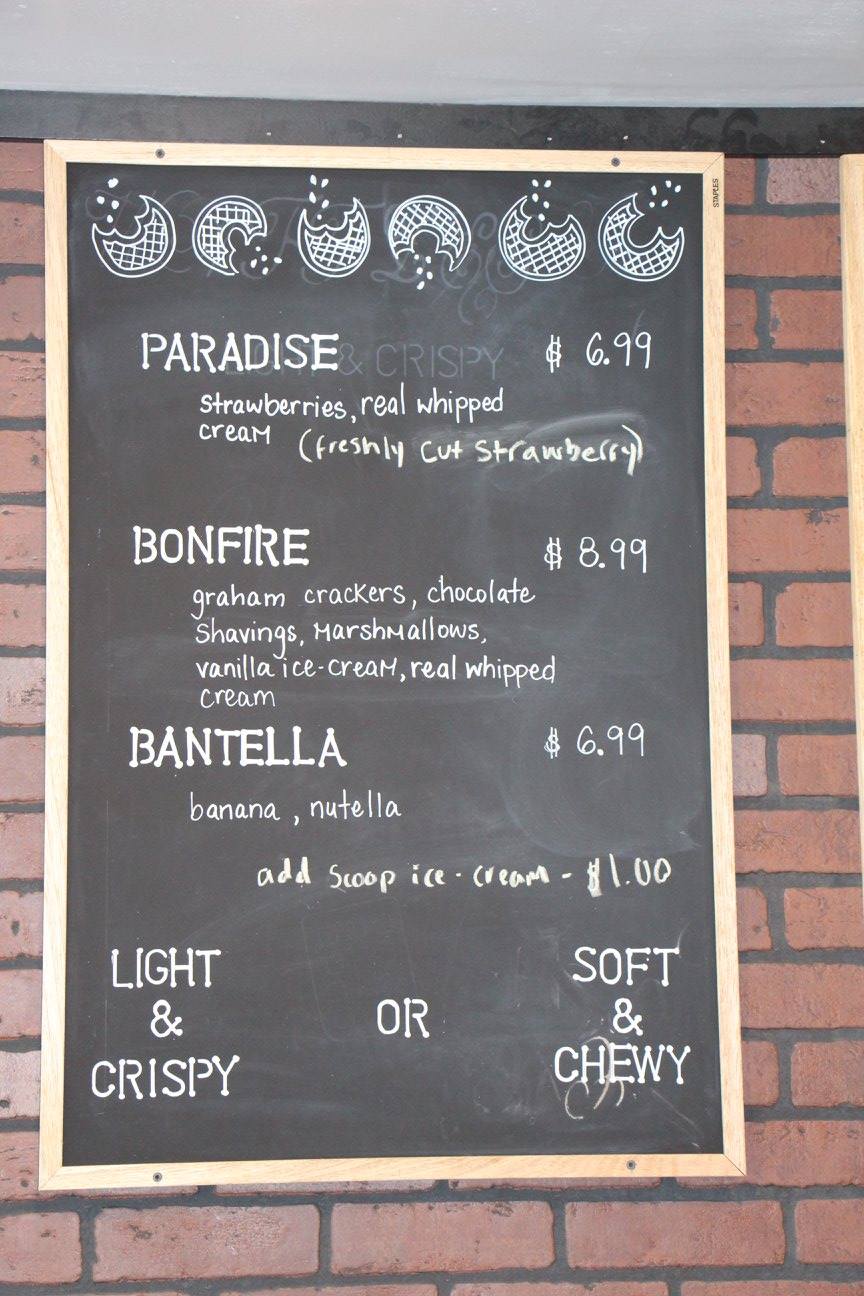 STAPLES
PARADISE $ 6.99
strawberries, real whipped
cream (freshly cut strawberry)
BONFIRE $ 8.99
graham crackers, chocolate
shavings, marshmallows,
vanilla ice-cream, real whipped
cream
BANTELLA $ 6.99
banana, nutella
add scoop ice-cream - $1.00
LIGHT SOFT
& OR &
CRISPY CHEWY
& CRISPY